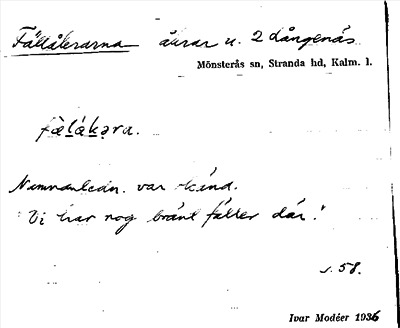 Fällåkrarna åkrar u. 2 Långenäs
Mönsterås sn, Stranda hd, Kalm. l.
fälåkara.
Namnanledn. var känd.
"Vi har nog bränt fäller där."
s. 58.
Ivar Modéer 1936